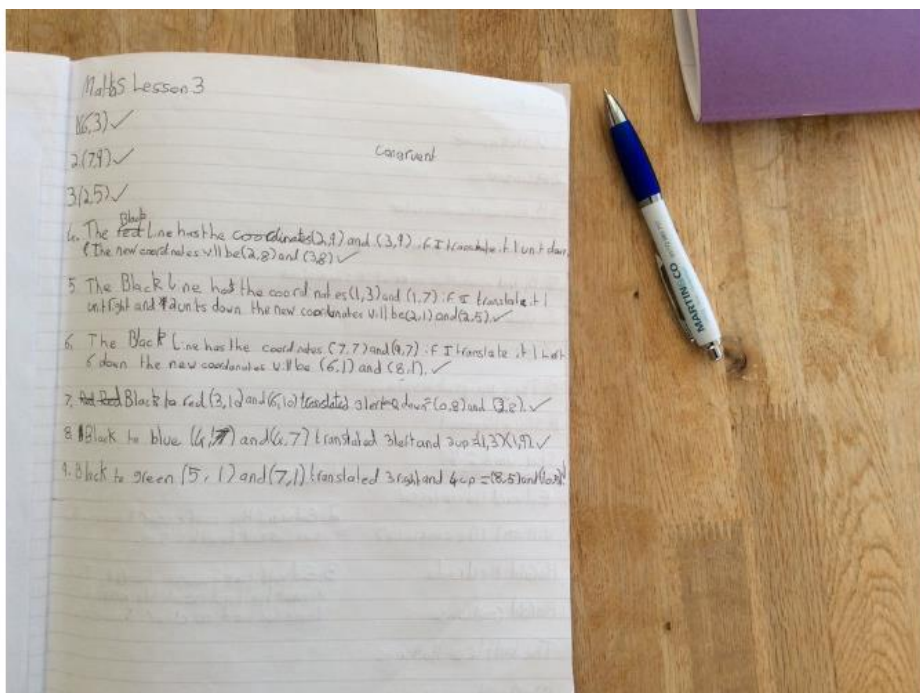 Maths Lesson 3
1(6,3) ✓
2.(7,9) ✓
Congruent
3(2,5) ✓
Black
4. The red Line has the coordinates(2,9) and (3,9) if I translate it 1 unit down
The new coordinates will be(2,8) and (3,8) ✓
5. The Black Line has the coordinates(1,3) and (1,7) if I translate it 1
unit right and 2 units down the new coordinates will be(2,1) and(2,5). ✓
6. The Black Line has the coordinates (7,7) and (9,7) if I translate it 1 left
6 down the new coordinates will be (6,1) and (8,1). ✓
7. Black to red (3,10) and(6,10) translated 3 left 2 down = (0,8) and (3,8). ✓
8. Black to blue (4, and(4,7) translated 3 left and 2up = (1,3)(1,9). ✓
9. Black to green (5, 1) and (7,1) translated 3 right and 4up = (8,5) and
MARTIN&CO